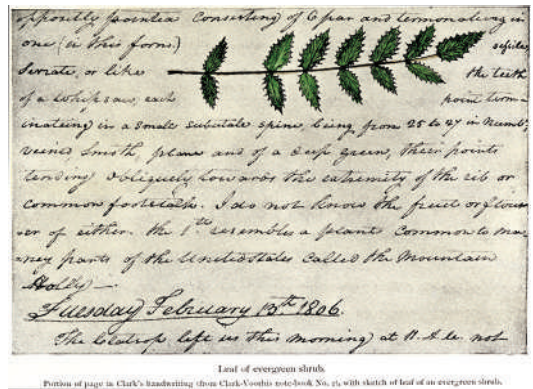 oppositly pointed Consisting of 6 par and termonateing in
one (in this form.) sessile,
Serrate, or like the teeth
of a whipsaw, each point term-
inateing in a Small subulate spine, being from 25 to 27 in Numbr,
veined Smoth, plane and of a deep green, their points
tending obliquely towards the extremity of the rib or
common footstalk. I do not know the fruit or flow
er of either. the 1st resembles a plant Common to ma
ney parts of the United states called the Mountain
Holly —
Tuesday February 13th 1806.
The Clatsop left us this morning at 11. A.M. not
Leaf of evergreen shrub.
Portion of page in Clark's handwriting (from Clark-Voorhis note-book No. 2), with sketch of leaf of an evergreen shrub.